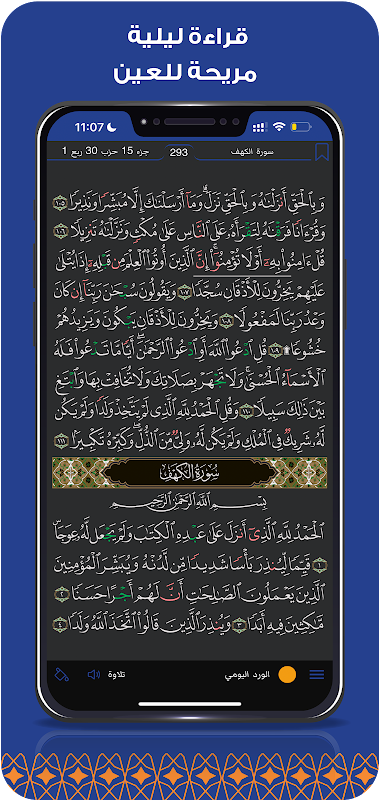 قراءة ليلية
مريحة للعين
11:07
جزء 15 حزب 30 ربع 1
293
سورة الكهف
وَبِٱلۡحَقِّ أَنزَلۡنَٰهُ وَبِٱلۡحَقِّ نَزَلَۗ وَمَآ أَرۡسَلۡنَٰكَ إِلَّا مُبَشِّرٗا وَنَذِيرٗا ١٠٥
وَقُرۡءَانٗا فَرَقۡنَٰهُ لِتَقۡرَأَهُۥ عَلَى ٱلنَّاسِ عَلَىٰ مُكۡثٖ وَنَزَّلۡنَٰهُ تَنزِيلٗا ١٠٦
قُلۡ ءَامِنُواْ بِهِۦٓ أَوۡ لَا تُؤۡمِنُوٓاْۚ إِنَّ ٱلَّذِينَ أُوتُواْ ٱلۡعِلۡمَ مِن قَبۡلِهِۦٓ إِذَا يُتۡلَىٰ
عَلَيۡهِمۡ يَخِرُّونَۤ لِلۡأَذۡقَانِۤ سُجَّدٗاۤ ١٠٧ وَيَقُولُونَ سُبۡحَٰنَ رَبِّنَآ إِن كَانَ
وَعۡدُ رَبِّنَا لَمَفۡعُولٗا ١٠٨ وَيَخِرُّونَ لِلۡأَذۡقَانِ يَبۡكُونَ وَيَزِيدُهُمۡ
خُشُوعٗا ۩ ١٠٩ قُلِ ٱدۡعُواْ ٱللَّهَ أَوِ ٱدۡعُواْ ٱلرَّحۡمَٰنَۖ أَيّٗا مَّا تَدۡعُواْ فَلَهُ
ٱلۡأَسۡمَآءُ ٱلۡحُسۡنَىٰۚ وَلَا تَجۡهَرۡ بِصَلَاتِكَ وَلَا تُخَافِتۡ بِهَا وَٱبۡتَغِ
بَيۡنَ ذَٰلِكَ سَبِيلٗا ١١٠ وَقُلِ ٱلۡحَمۡدُ لِلَّهِ ٱلَّذِي لَمۡ يَتَّخِذۡ وَلَدٗا وَلَمۡ يَكُن
لَّهُۥ شَرِيكٞ فِي ٱلۡمُلۡكِ وَلَمۡ يَكُن لَّهُۥ وَلِيّٞ مِّنَ ٱلذُّلِّۖ وَكَبِّرۡهُ تَكۡبِيرَۢا ١١١
سُورَةُ الكَهۡفِ
بِسۡمِ ٱللَّهِ ٱلرَّحۡمَٰنِ ٱلرَّحِيمِ
ٱلۡحَمۡدُ لِلَّهِ ٱلَّذِيٓ أَنزَلَ عَلَىٰ عَبۡدِهِ ٱلۡكِتَٰبَ وَلَمۡ يَجۡعَل لَّهُۥ عِوَجَاۜ
١ قَيِّمٗا لِّيُنذِرَ بَأۡسٗا شَدِيدٗا مِّن لَّدُنۡهُ وَيُبَشِّرَ ٱلۡمُؤۡمِنِينَ
ٱلَّذِينَ يَعۡمَلُونَ ٱلصَّٰلِحَٰتِ أَنَّ لَهُمۡ أَجۡرًا حَسَنٗا ٢
مَّٰكِثِينَ فِيهِ أَبَدٗا ٣ وَيُنذِرَ ٱلَّذِينَ قَالُواْ ٱتَّخَذَ ٱللَّهُ وَلَدٗا ٤
الورد اليومي
تلاوة